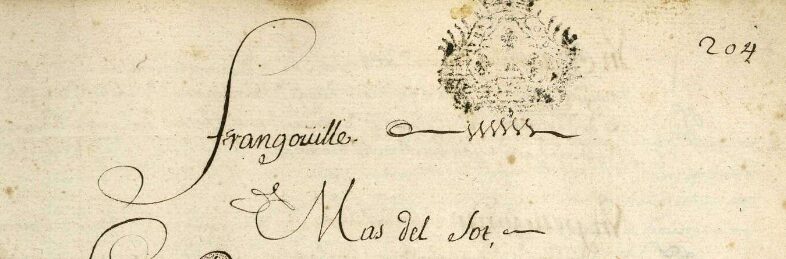 204
frangouille.
Mas del Sot,